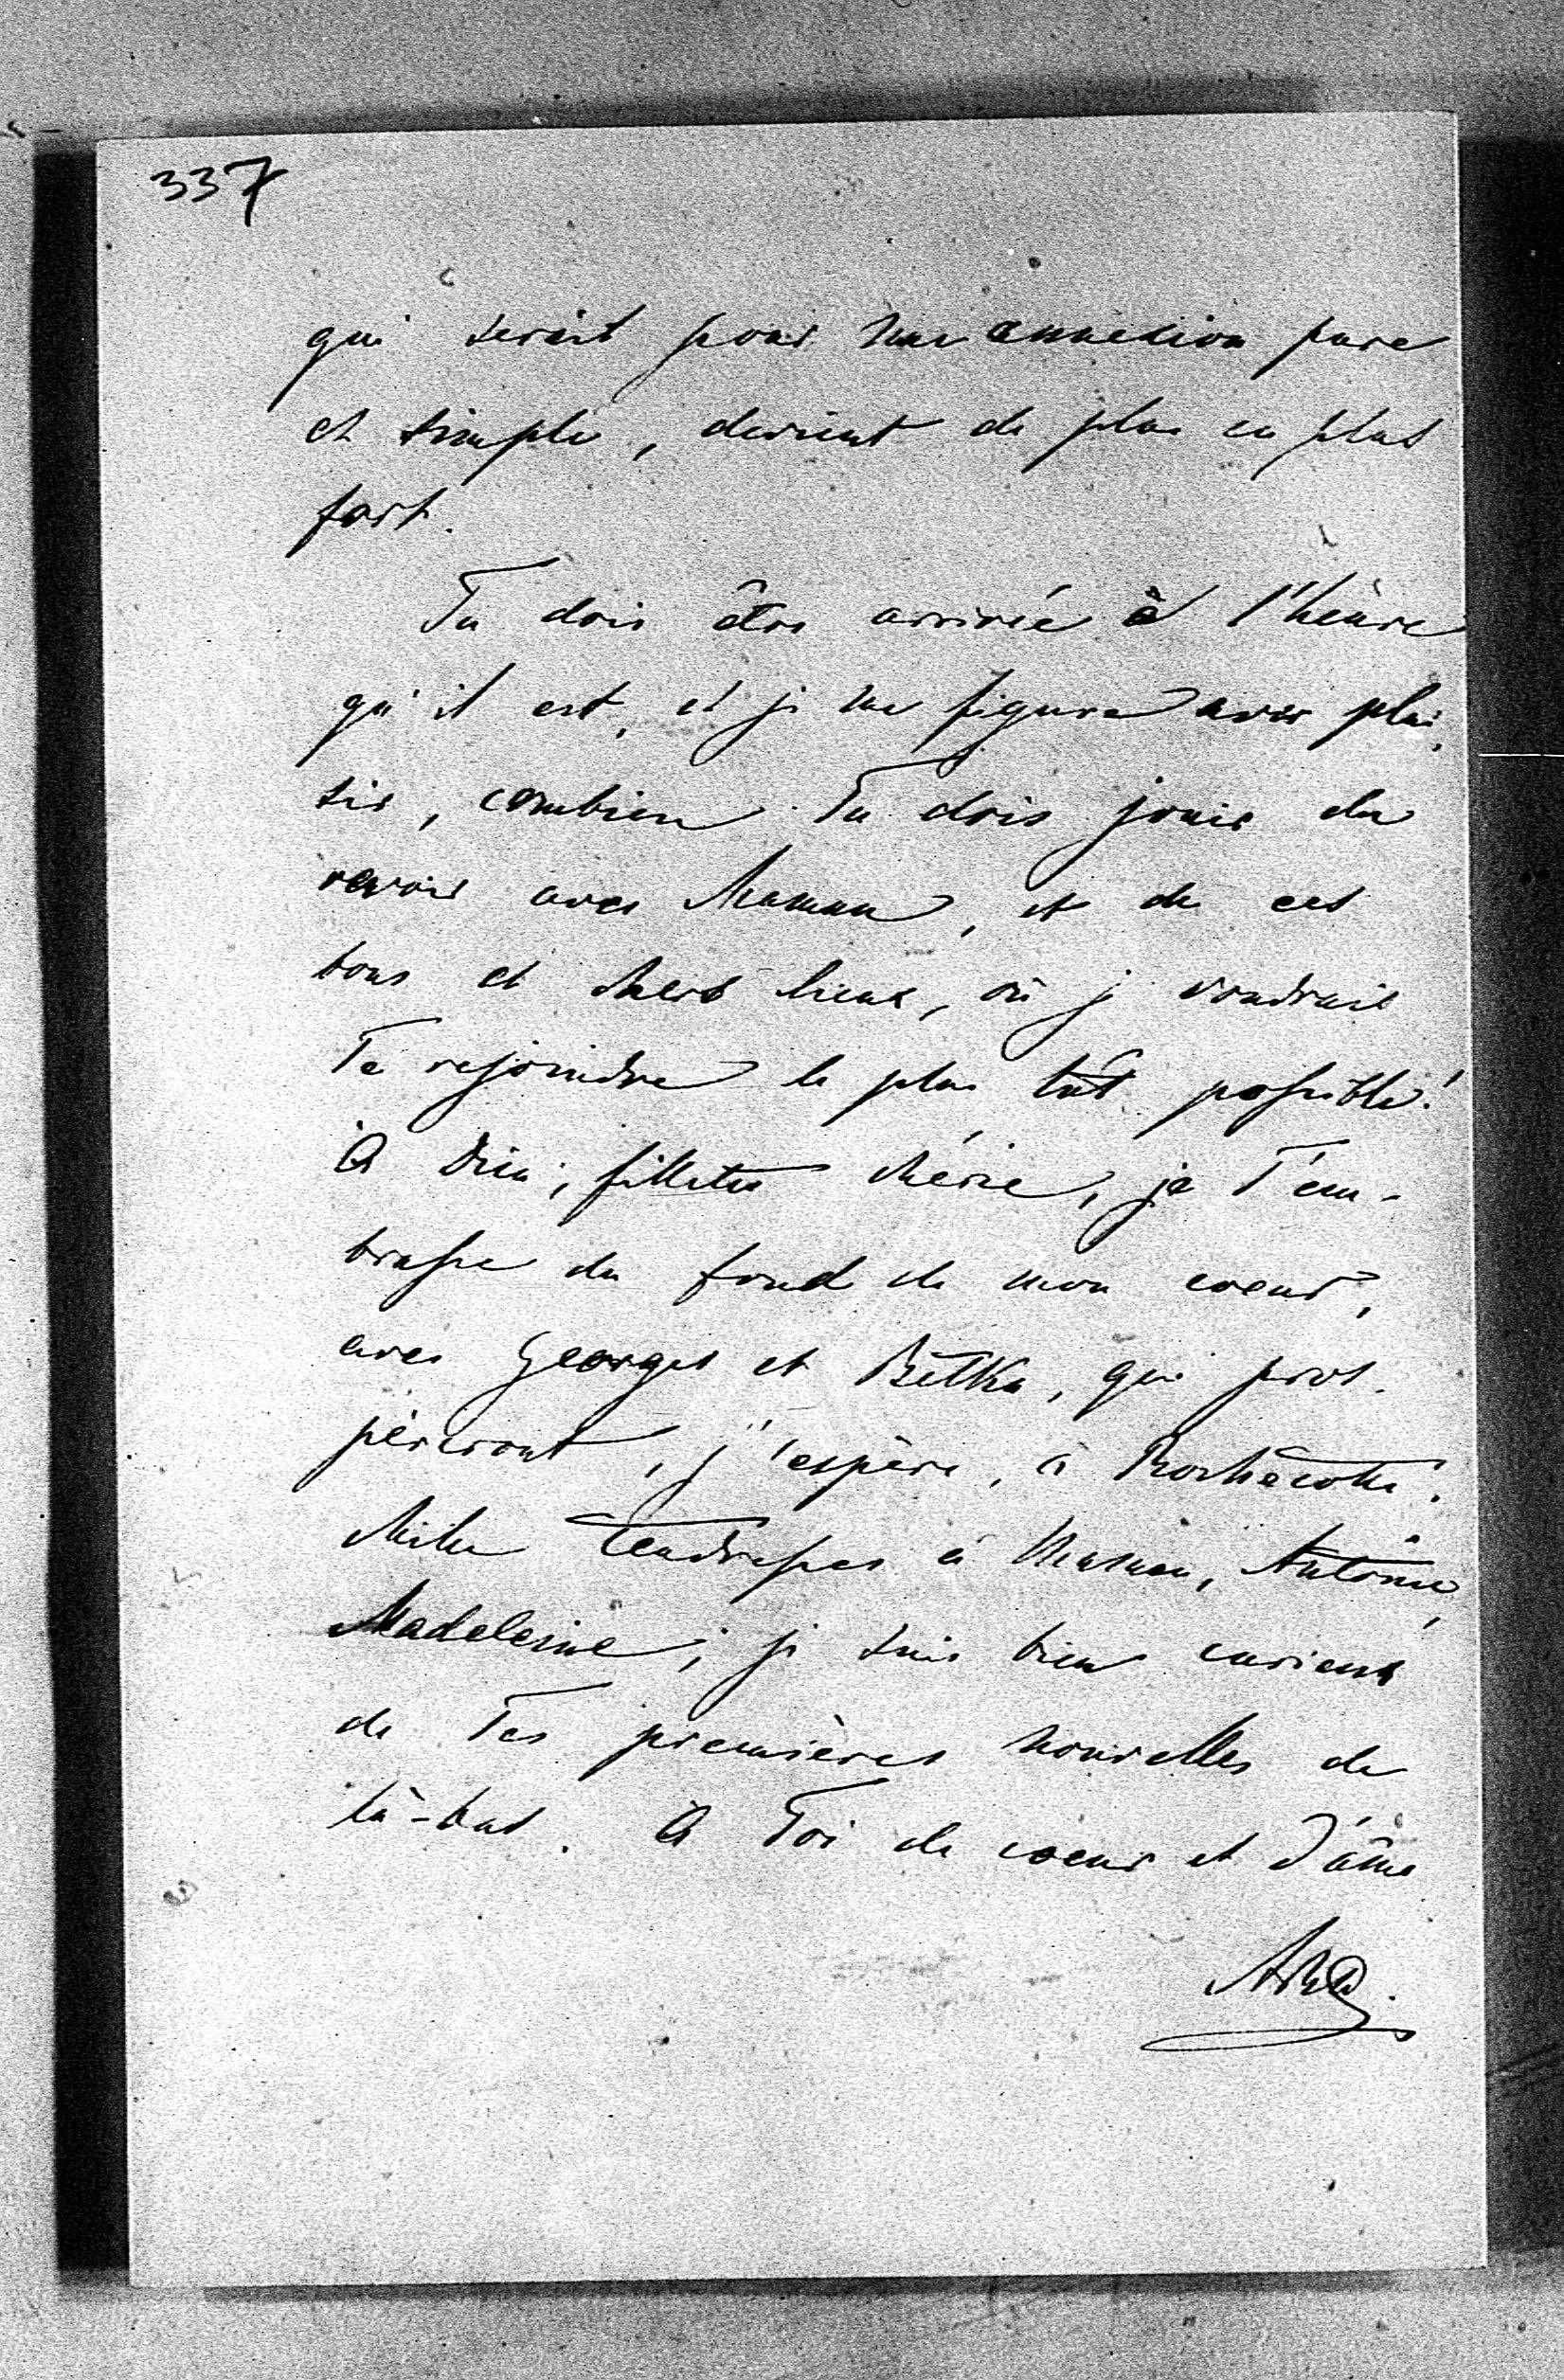 337
qui serait pour une annexion pure
et simple, devient de plus en plus
fort.
Tu dois être arrivée à l'heure
qu'il est, et je me figure avec plai-
sir, combien Tu dois jouir du
revoir avec Maman, et de ces
bons et chers lieux, où je voudrais
Te rejoindre le plus tôt possible!
À Dieu, fillette chérie, je T'em-
brasse du fond de mon coeur,
avec Georges et Betka, qui pros-
pèreront, j'espère, à Rochecotte.
Mille tendresses à Maman, Antoine,
Madeleine; je suis bien curieux
de Tes premières nouvelles de
là-bas. À Toi de coeur et d'âme